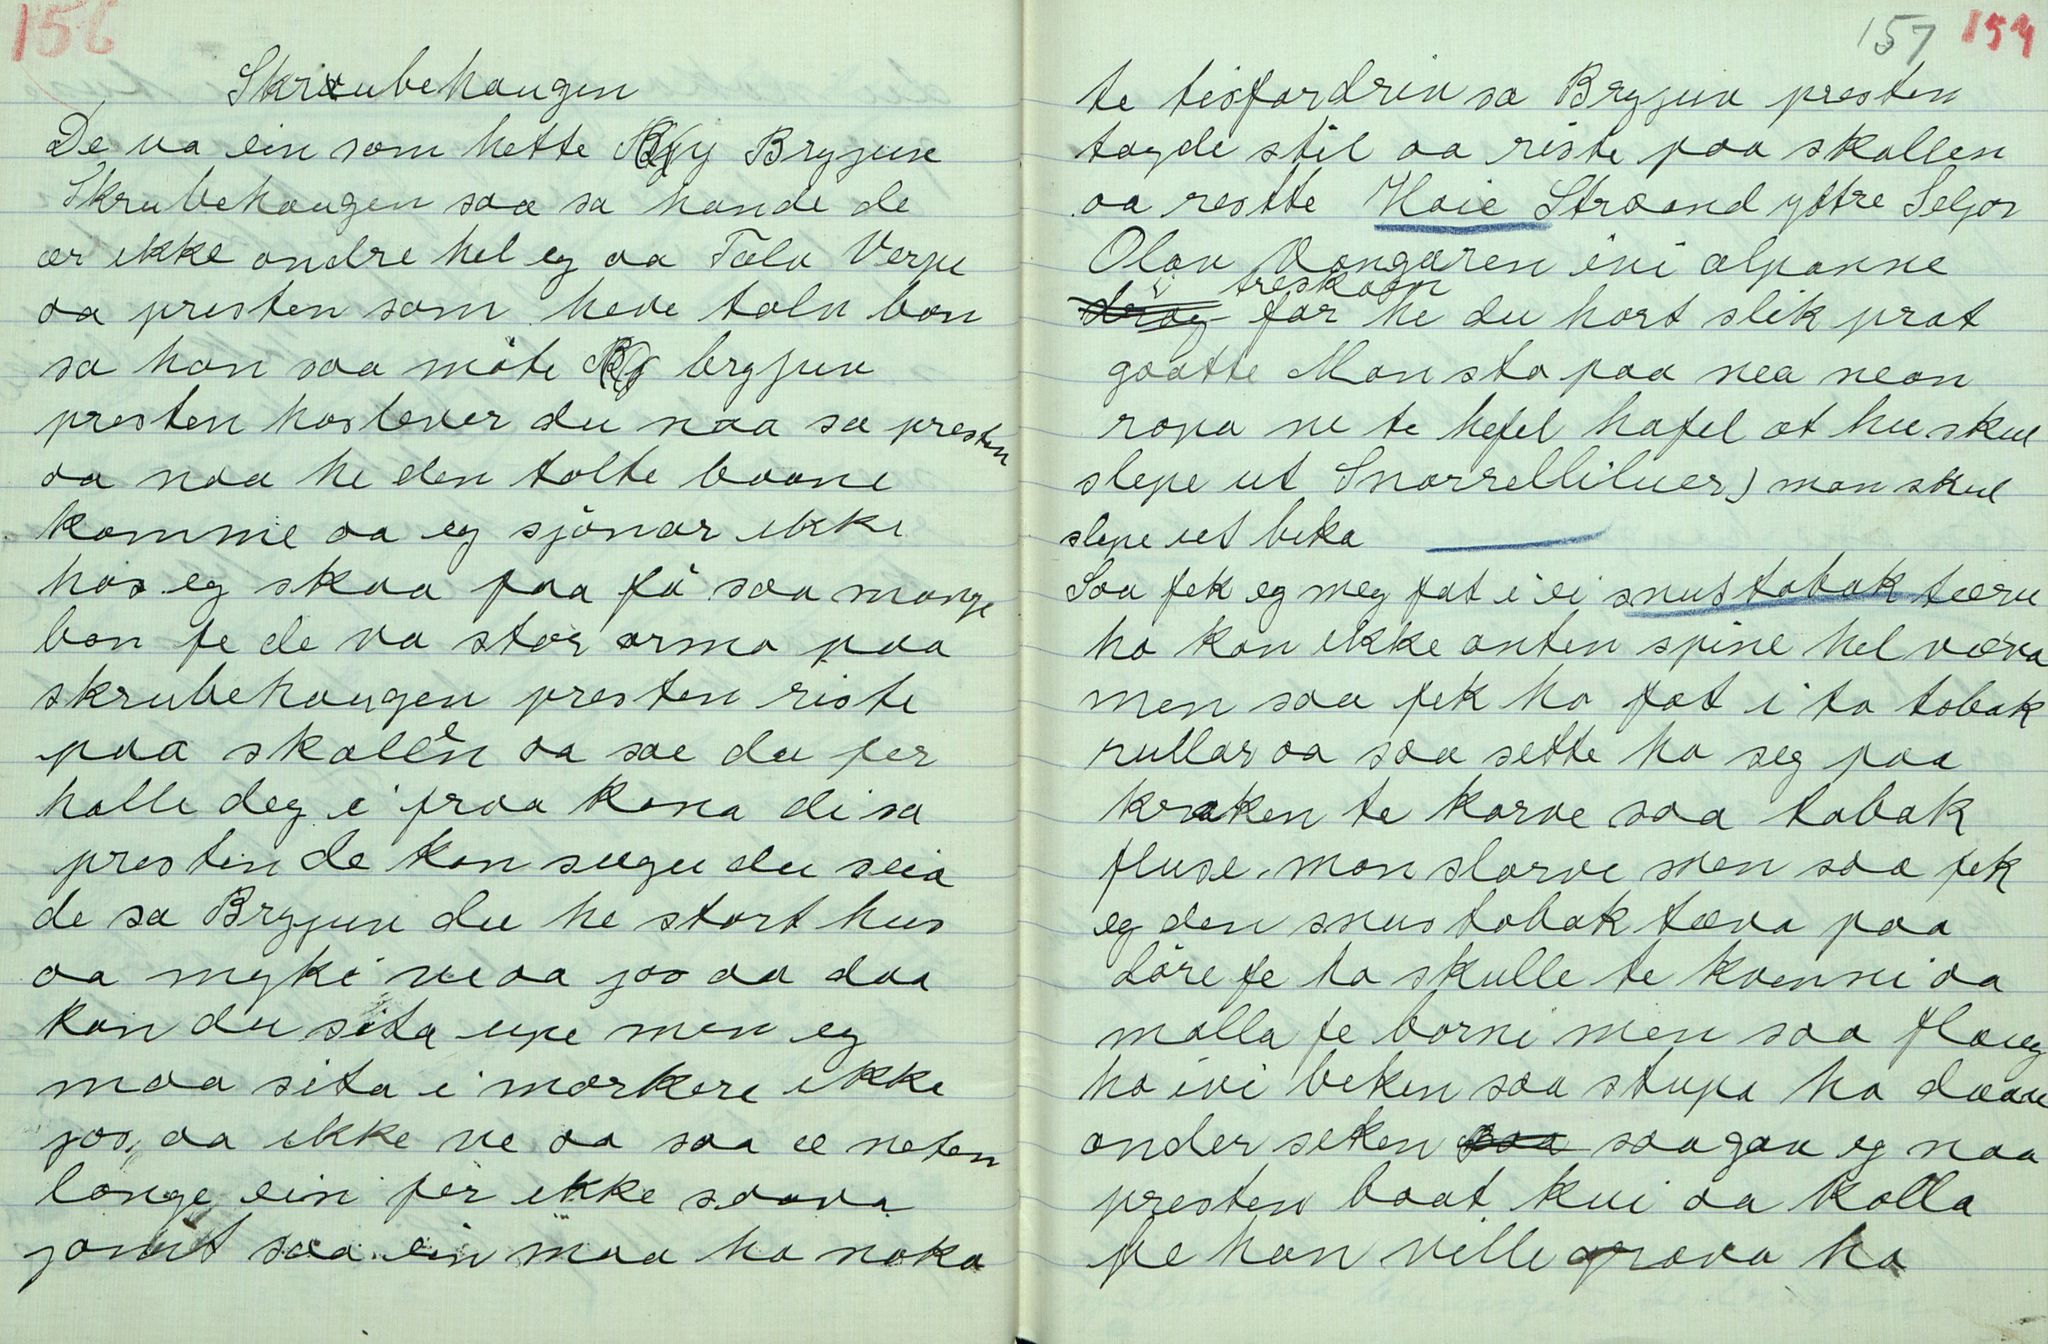 156
Skrubehaugen
De va ein som hette Bryjuv
Skrubehaugen saa sa hande de
ær ikke andre hel eg aa Tala Verpe
aa presten som heve taln bon
sa han saa möte bryjuv
presten hoslever du naa sa presten
aa naa he den tolte baane
komme aa eg sjönar ikke
hos eg skaa faa fö saa mange
bon fe de va stor arma paa
skrubehaugen presten riste
paa skallen aa sae du fer
halle deg i fraa kona di sa
presten de kan sugu du seia
de sa Bryjuv du he stort hus
aa myki ve aa jos aa daa
kan du sita upe men eg
maa sita i morkere ikke
jos, aa ikke ve aa saa æ neten
lange ein fer ikke saava
jomt saa ein maa ha noka
157 157
te tisfordrin sa Bryjuv presten
tagde stil aa riste paa skallen
aa restte Hoie Straand yttre Seljor
Olav Vongaren ivi alpanne
treskoen
far he du hort slik prat
gaatte Mansto paa nea nean
ropa ne te hefel hafel at hu skul
slepe ut Snorrelliluer) man skul
slepe ut beka
Saa fek eg meg fat i ei snustobak tæve
ho kan ikke anten spine hel væva
men saa fek ho fat i to tobak
rullar aa saa sette ho seg paa
kraken te karve saa tobak
fluse. man slarve men saa fek
eg den snustobak tæva paa
döre fe ho skulle te kvenni aa
malla fe borni men saa flaug
ho ivi beken saa stupa ho daaue
onder seken saa gav eg naa
presten baat kui aa kalla
fe han ville grava ho